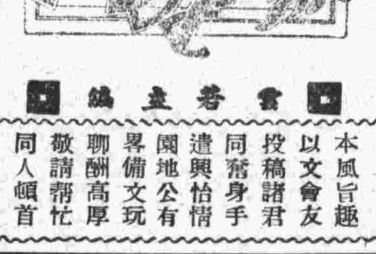 雲若主編
本風旨趣
以文會友
投稿諸君
同奮身手
遣興怡情
園地公有
畧備文玩
聊酬高厚
敬請帮忙
同人頓首